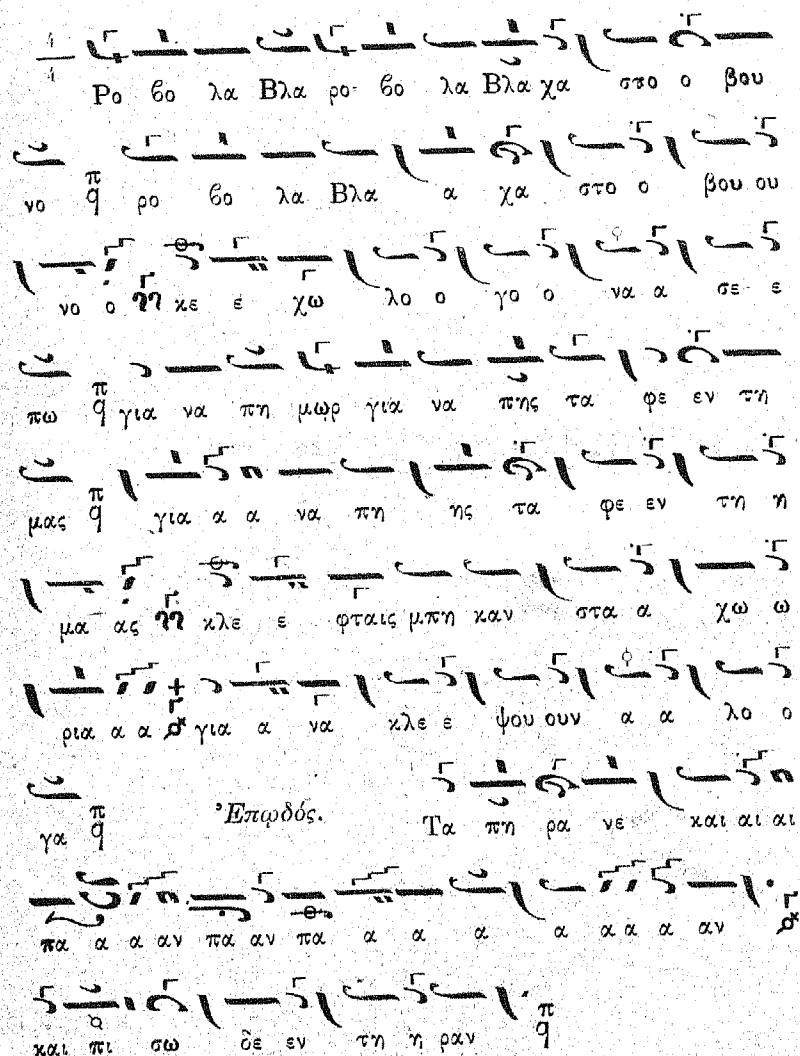 Ρο βο λα Βλα ρο βο λα Βλα χα στο ο βου
νο π q ρο βο λα Βλα α χα στο ο βου ου
νο ο κε ε χω λο ο γο ο να α σε ε
πω π q για να πη μωρ για να πης τα φε εν τη
μας π q για α α να πη ης τα φε εν τη η
μα ας κλε ε φταις μπη καν στα α χω ω
ρια α α για α να κλε ε ψου ουν α α λο ο
γα π q Ἐπῳδός. Τα πη ρα νε και αι αι
πα α α αν πα αν πα α α α α α α α αν
και πι σω δε εν τη η ραν π q